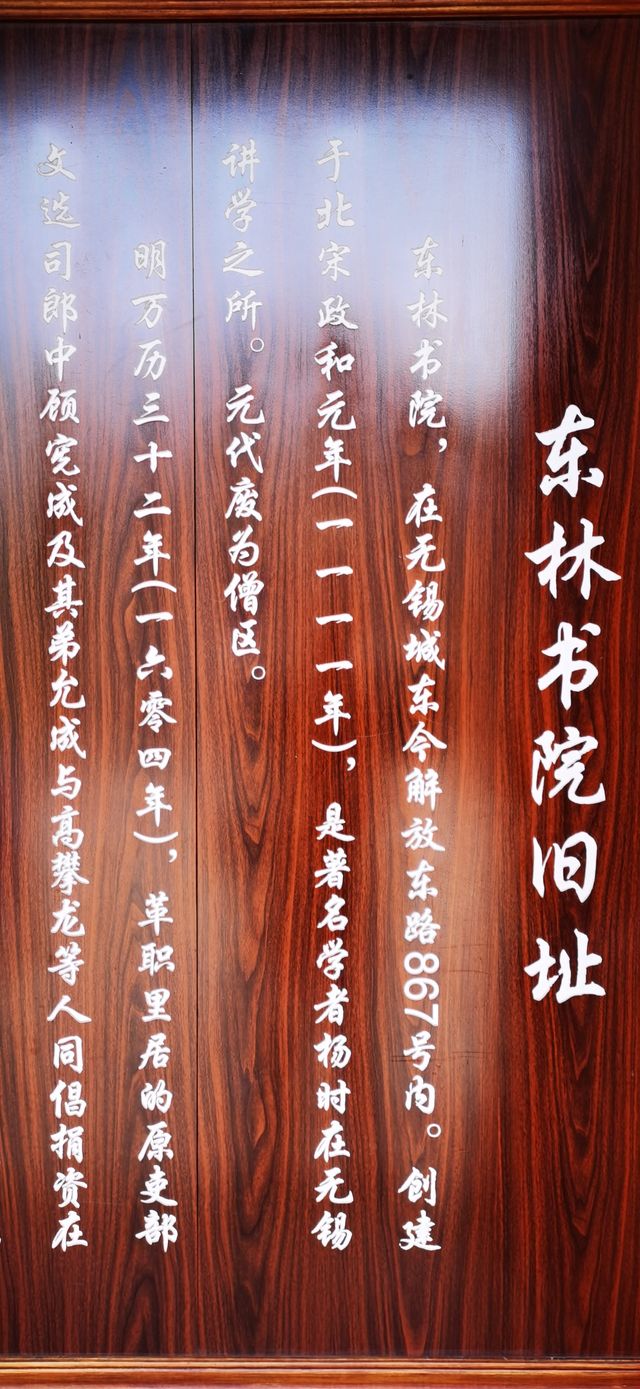 东林书院旧址
东林书院，在无锡城东今解放东路867号内。创建
于北宋政和元年(一一一一年)，是著名学者杨时在无锡
讲学之所。元代废为僧区。
明万历三十二年(一六零四年)，革职里居的原吏部
文选司郎中顾宪成及其弟允成与高攀龙等人同倡捐资在